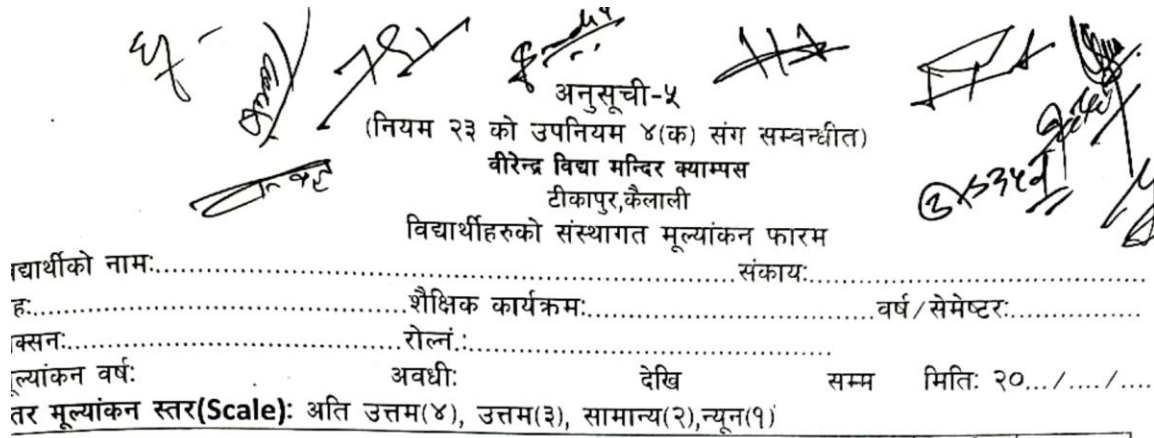 अनुसूची-५
(नियम २३ को उपनियम ४(क) संग सम्वन्धीत)
वीरेन्द्र विद्या मन्दिर क्याम्पस
टीकापुर,कैलाली
विद्यार्थीहरुको संस्थागत मूल्यांकन फारम
द्यार्थीको नाम:..........................................................................संकाय:...........................................
ह:................................................शैक्षिक कार्यक्रम:.....................................वर्ष/सेमेष्टर:.................
क्सन:...........................................रोल्नं.:...............................................
ल्यांकन वर्ष: अवधी: देखि सम्म मिति: २०.../..../....
तर मूल्यांकन स्तर(Scale): अति उत्तम(४), उत्तम(३), सामान्य(२),न्यून(१)